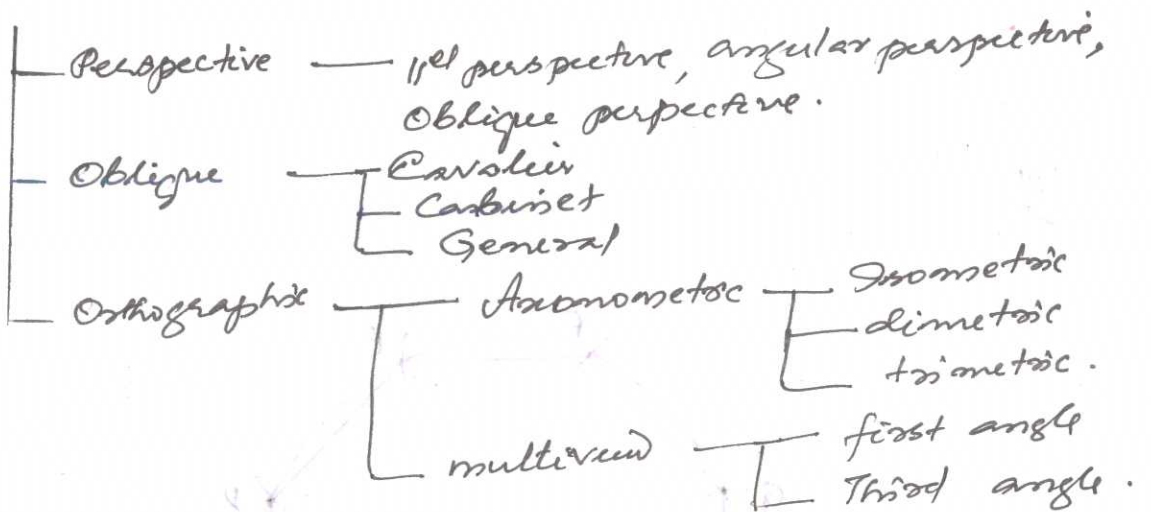 Perspective — ||el perspective, angular perspective,
Oblique perpective.
Oblique — Cavalier
Cabinet
General
Orthographic — Axonometric — Isometric
dimetric
trimetric.
multiview — first angle
Third angle.